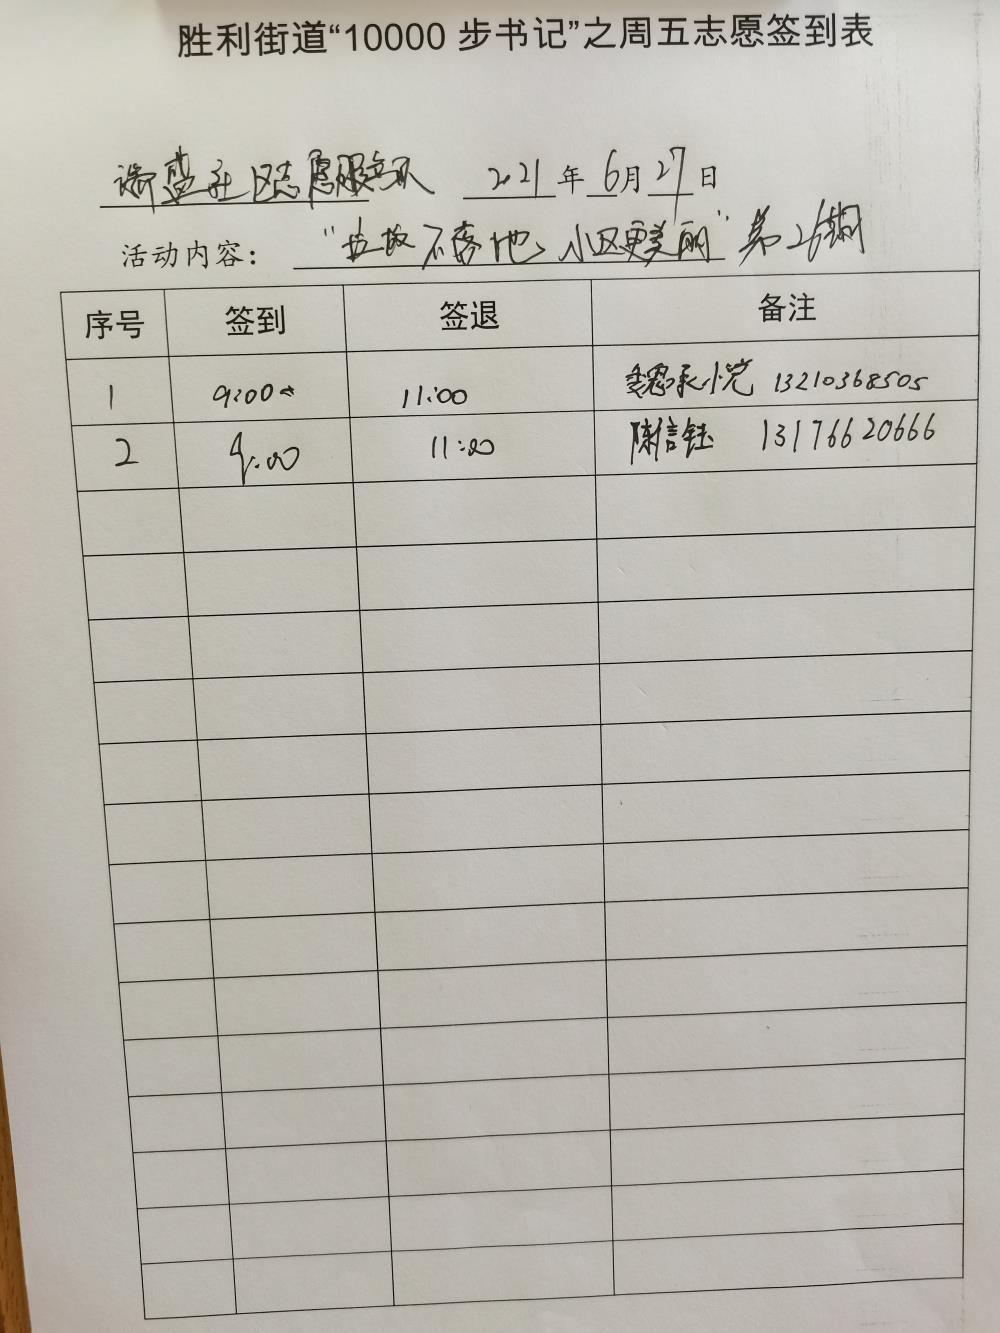 胜利街道“10000 步书记”之周五志愿签到表
社区志愿服务队 2021 年 6月 27 日
活动内容： “垃圾不落地、小区更美丽” 第26期
序号 签到 签退 备注
1 9:00 11:00 魏 13210368505
2 9:00 11:00 陈信钰 13176620666